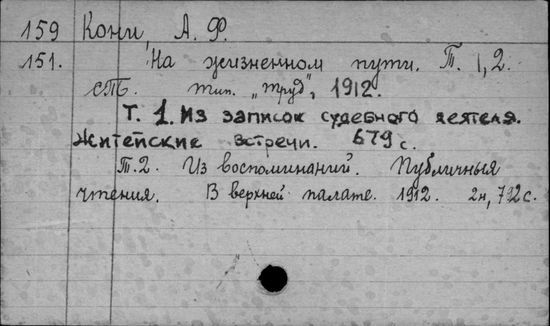 159 Кони А. Ф.
151. На жизненном пути. Т. 1, 2.
СПб. тип. "Труд", 1912.
Т. 1. Из записок судебного деятеля.
Житейские встречи. 679 с.
Т. 2. Из воспоминаний. Публичныя
чтения. В верхней палате. 1912. 2н, 792 с.